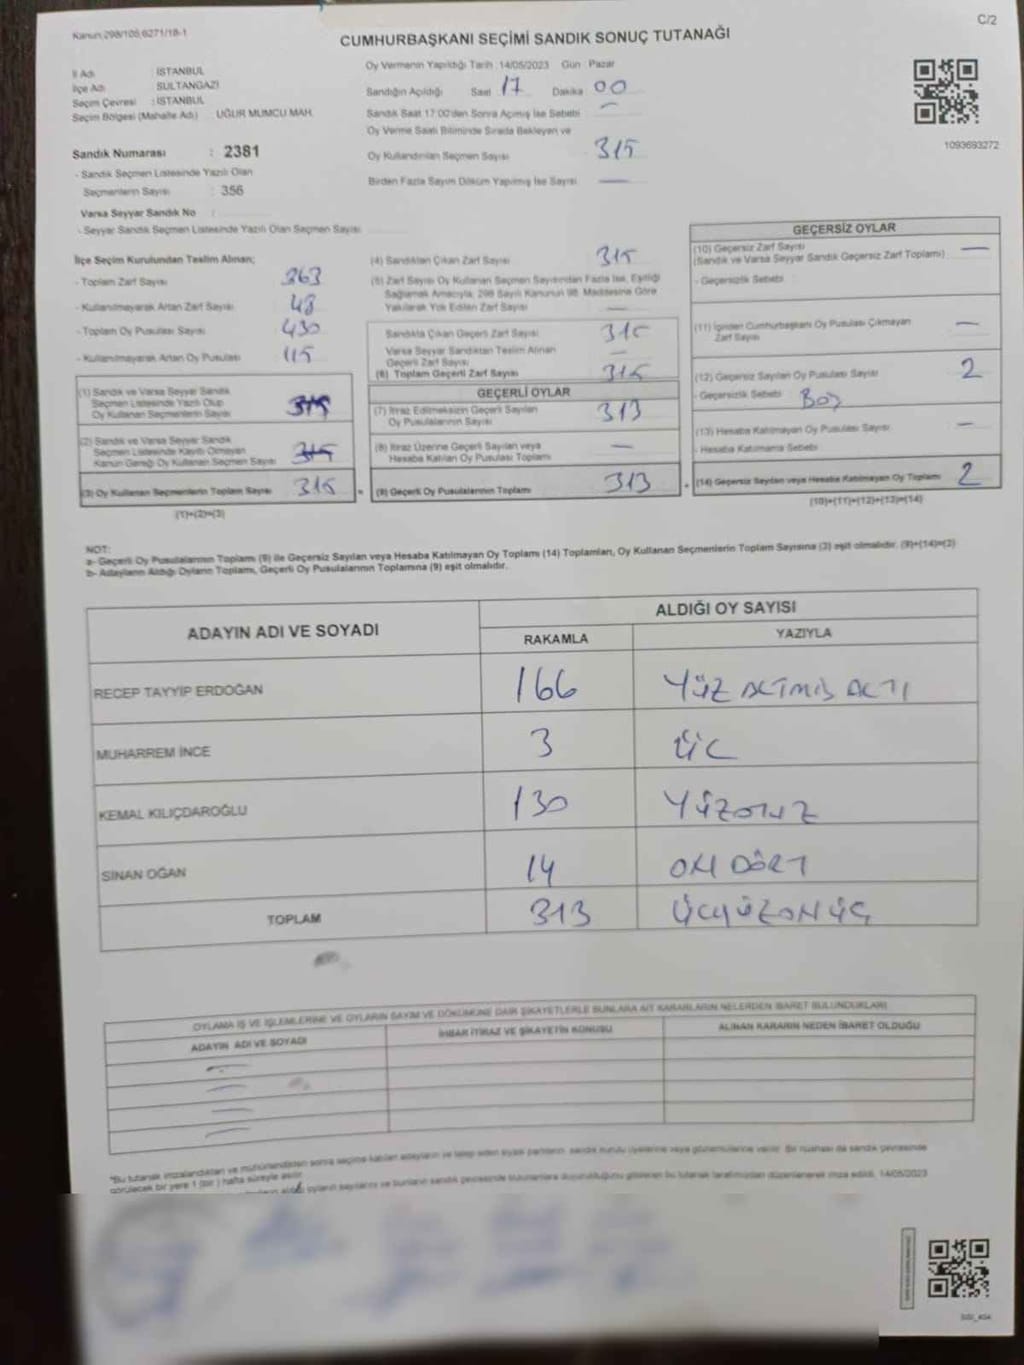 Kanun:298/105,6271/18-1
C/2
CUMHURBAŞKANI SEÇİMİ SANDIK SONUÇ TUTANAĞI
İl Adı : İSTANBUL
İlçe Adı : SULTANGAZİ
Seçim Çevresi : İSTANBUL
Seçim Bölgesi (Mahalle Adı) : UĞUR MUMCU MAH.
Sandık Numarası : 2381
- Sandık Seçmen Listesinde Yazılı Olan
Seçmenlerin Sayısı : 356
Varsa Seyyar Sandık No :
- Seyyar Sandık Seçmen Listesinde Yazılı Olan Seçmen Sayısı
Oy Vermenin Yapıldığı Tarih :14/05/2023 Gün : Pazar
Sandığın Açıldığı Saat 17 Dakika 00
Sandık Saat 17:00'den Sonra Açılmış İse Sebebi —
Oy Verme Saati Bitiminde Sırada Bekleyen ve
Oy Kullandırılan Seçmen Sayısı 315
Birden Fazla Sayım Döküm Yapılmış İse Sayısı —
1093693272
İlçe Seçim Kurulundan Teslim Alınan;
- Toplam Zarf Sayısı 363
- Kullanılmayarak Artan Zarf Sayısı 48
- Toplam Oy Pusulası Sayısı 430
- Kullanılmayarak Artan Oy Pusulası 115
(1) Sandık ve Varsa Seyyar Sandık
Seçmen Listesinde Yazılı Olup
Oy Kullanan Seçmenlerin Sayısı 315
(2) Sandık ve Varsa Seyyar Sandık
Seçmen Listesinde Kayıtlı Olmayan
Kanun Gereği Oy Kullanan Seçmen Sayısı 315
(3) Oy Kullanan Seçmenlerin Toplam Sayısı 315
(1)+(2)=(3)
(4) Sandıktan Çıkan Zarf Sayısı 315
(5) Zarf Sayısı Oy Kullanan Seçmen Sayısından Fazla İse, Eşitliği
Sağlamak Amacıyla, 298 Sayılı Kanunun 98. Maddesine Göre
Yakılarak Yok Edilen Zarf Sayısı —
Sandıkta Çıkan Geçerli Zarf Sayısı 315
Varsa Seyyar Sandıktan Teslim Alınan
Geçerli Zarf Sayısı —
(6) Toplam Geçerli Zarf Sayısı 315
GEÇERLİ OYLAR
(7) İtiraz Edilmeksizin Geçerli Sayılan
Oy Pusulalarının Sayısı 313
(8) İtiraz Üzerine Geçerli Sayılan veya
Hesaba Katılan Oy Pusulası Toplamı —
(9) Geçerli Oy Pusulalarının Toplamı 313
GEÇERSİZ OYLAR
(10) Geçersiz Zarf Sayısı
(Sandık ve Varsa Seyyar Sandık Geçersiz Zarf Toplamı) —
- Geçersizlik Sebebi
(11) İçinden Cumhurbaşkanı Oy Pusulası Çıkmayan
Zarf Sayısı —
(12) Geçersiz Sayılan Oy Pusulası Sayısı 2
- Geçersizlik Sebebi Boş
(13) Hesaba Katılmayan Oy Pusulası Sayısı —
- Hesaba Katılmama Sebebi
(14) Geçersiz Sayılan veya Hesaba Katılmayan Oy Toplamı 2
(10)+(11)+(12)+(13)=(14)
NOT:
a- Geçerli Oy Pusulalarının Toplamı (9) ile Geçersiz Sayılan veya Hesaba Katılmayan Oy Toplamı (14) Toplamları, Oy Kullanan Seçmenlerin Toplam Sayısına (3) eşit olmalıdır. (9)+(14)=(3)
b- Adayların Aldığı Oyların Toplamı, Geçerli Oy Pusulalarının Toplamına (9) eşit olmalıdır.
ADAYIN ADI VE SOYADI
ALDIĞI OY SAYISI
RAKAMLA YAZIYLA
RECEP TAYYİP ERDOĞAN 166 YÜZ ALTMIŞ ALTI
MUHARREM İNCE 3 ÜÇ
KEMAL KILIÇDAROĞLU 130 YÜZOTUZ
SİNAN OĞAN 14 ON DÖRT
TOPLAM 313 ÜÇYÜZONÜÇ
OYLAMA İŞ VE İŞLEMLERİNE VE OYLARIN SAYIM VE DÖKÜMÜNE DAİR ŞİKAYETLERLE BUNLARA AİT KARARLARIN NELERDEN İBARET BULUNDUKLARI
ADAYIN ADI VE SOYADI
İHBAR İTİRAZ VE ŞİKAYETİN KONUSU
ALINAN KARARIN NEDEN İBARET OLDUĞU
"Bu tutanak imzalandıktan ve mühürlendikten sonra seçime katılan adayların ve talep eden siyasi partilerin sandık kurulu üyelerine veya gözlemcilerine verilir. Bir nüshası da sandık çevresinde
görülecek bir yere 1 (bir) hafta süreyle asılır.
oyların sayılarını ve bunların sandık çevresinde bulunanlara duyurulduğunu gösteren bu tutanak tarafımızdan düzenlenerek imza edildi. 14/05/2023